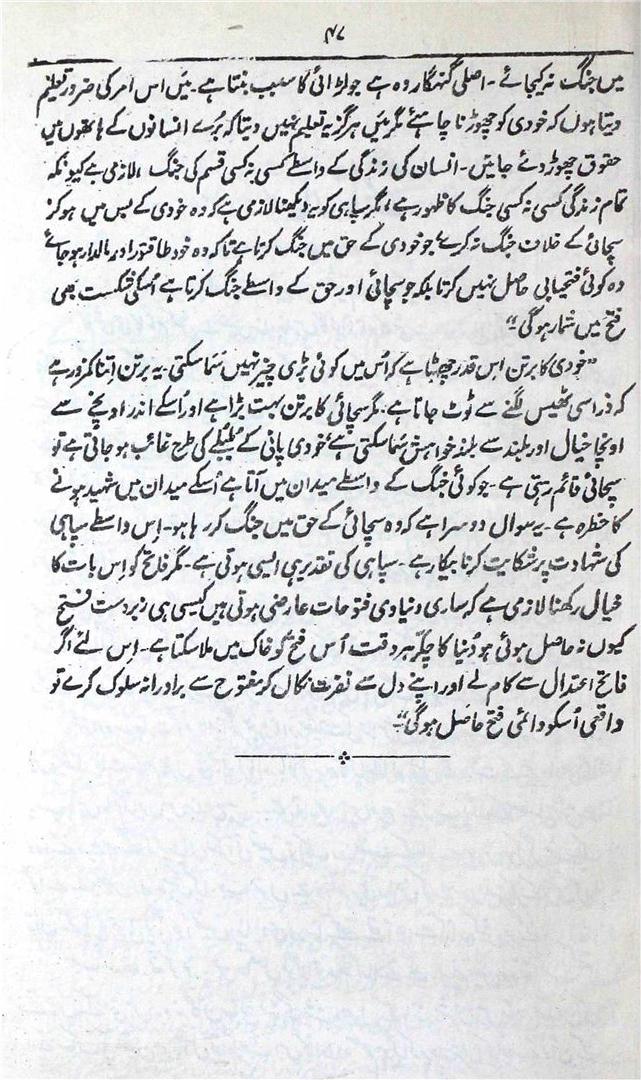 ۴۷
میں جنگ نہ کیجائے ۔ اصلی گنہگار وہ ہے جو لڑائی کا سبب بنتا ہے ۔ میں اس امر کی ضرور تعلیم
دیتا ہوں کہ خودی کو چھوڑنا چاہئے مگر میں ہرگز یہ تعلیم نہیں دیتا کہ بُرے انسانوں کے ہاتھوں میں
حقوق چھوڑ دئے جایئں ۔ انسان کی زندگی کے واسطے کسی نہ کسی قسم کی جنگ لازمی ہے کیونکہ
تمام زندگی کسی نہ کسی جنگ کا ظہور ہے، مگر سپاہی کو یہ دیکھنا لازمی ہے کہ وہ خودی کے بس میں ہو کر
سچائی کے خلاف جنگ نہ کرے جو خودی کے حق میں جنگ کرتا ہے تاکہ وہ خود طاقتور اور مالدار ہو جائے
وہ کوئی فتحیابی حاصل نہیں کرتا بلکہ جو سچائی اور حق کے واسطے جنگ کرتا ہے اُسکی شکست بھی
فتح میں شمار ہوگی ۔“
”خودی کا برتن اس قدر چھوٹا ہے کہ اُس میں کوئی بڑی چیز نہیں سَما سکتی ۔ یہ برتن اِتنا کمزور ہے
کہ ذرا سی ٹھیس لگنے سے ٹوٹ جاتا ہے ۔ مگر سچائی کا برتن بہت بڑا ہے اور اُسکے اندر اونچے سے
اونچا خیال اور بلند سے بلند خواہش سَما سکتی ہے، خودی پانی کے بُلبُلے کی طرح غائب ہو جاتی ہے تو
سچائی قائم رہتی ہے ۔ جو کوئی جنگ کے واسطے میدان میں آتا ہے اُسکے میدان میں شہید ہونے
کا خطرہ ہے ۔ یہ سوال دوسرا ہے کہ وہ سچائی کے حق میں جنگ کر رہا ہو ۔ اِس واسطے سپاہی
کی شہادت پر شکایت کرنا بیکار ہے ۔ سپاہی کی تقدیر ہی ایسی ہوتی ہے ۔ مگر فاتح کو اِس بات کا
خیال رکھنا لازمی ہے کہ ساری دنیاوی فتوحات عارضی ہوتی ہیں کیسی ہی زبردست فتح
کیوں نہ حاصل ہوئی ہو دُنیا کا چکّر ہر وقت اُس فتح کو خاک میں ملا سکتا ہے ۔ اِس لئے اگر
فاتح اعتدال سے کام لے اور اپنے دل سے نفرت نکال کر مفتوح سے برادرانہ سلوک کرے تو
واقعی اُسکو دائمی فتح حاصل ہوگی ۔“